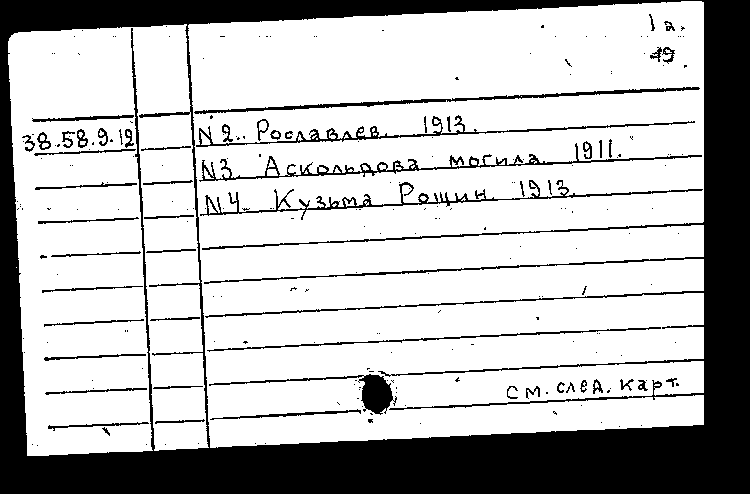 1а.
49
38.58.9.12 N2. Рославлев. 1913.
N3. Аскольдова могила. 1911.
N4. Кузьма Рощин. 1913.
см. след. карт.